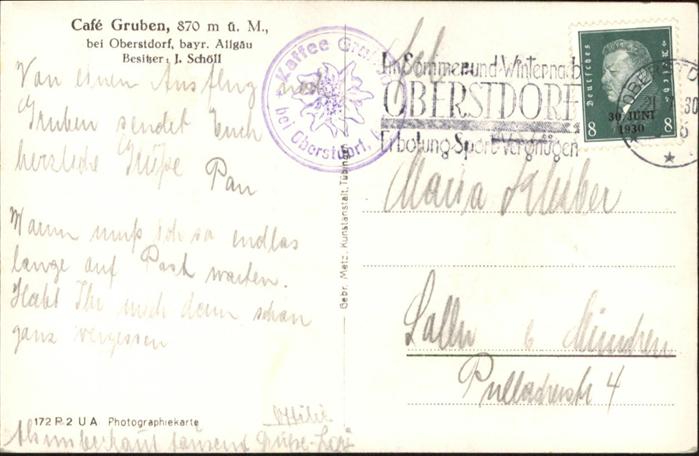 Café Gruben, 870 m ü. M.,
bei Oberstdorf, bayr. Allgäu
Besitzer: J. Schöll
Von einem Ausflug nach
Gruben sendet Euch
herzliche Grüße
Pan
Warum muß ich so endlos
lange auf Post warten.
Habt Ihr mich denn schon
ganz vergessen
Ottilie
tausend Grüße
172 P 2 U A Photographiekarte
Gebr. Metz, Kunstanstalt, Tübingen
Kaffee Gruben
bei Oberstdorf,
Im Sommer und Winter
OBERSTDORF
Erholung-Sport-Vergnügen
OBERSTDO
30
Deutsches Reich
30. JUNI
1930
8 8
Maria
Solln b München
Pullacherstr 4